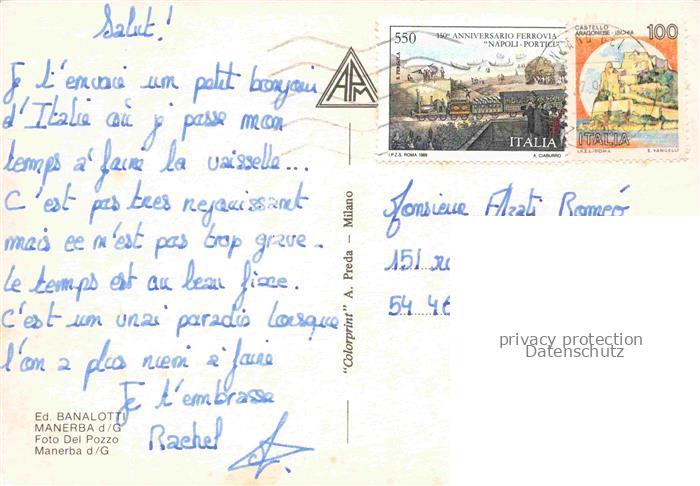 Salut!
Je t'envoie um petit bonjour
d'Italie où je passe mon
temps à faire la vaisselle...
C'est pas tres rejouissant
mais ce n'est pas trop grave.
Le temps est au beau fixe.
C'est um vrai paradis lorsque
l'on a plus rien à faire
Je t'embrasse
Rachel
Ed. BANALOTTI
MANERBA d/G
Foto Del Pozzo
Manerba d/G
"Colorprint" A. Preda – Milano
APM
550
150° ANNIVERSARIO FERROVIA
"NAPOLI-PORTICI"
ITALIA
I.P.Z.S. ROMA 1989
A. CIABURRO
CASTELLO
ARAGONESE - ISCHIA
100
ITALIA
I.P.Z.S. ROMA
E. VANGELLI
Monsieur Alzati Roméo
151
54 46
privacy protection
Datenschutz